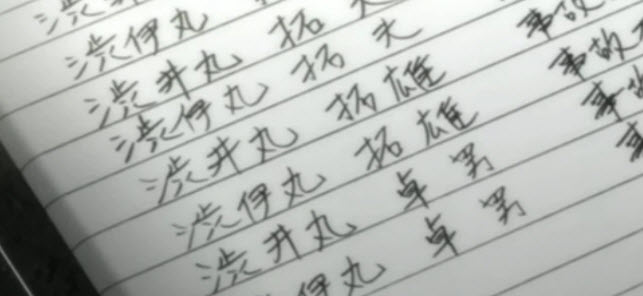 渋井
渋伊丸
渋井丸 拓夫
渋伊丸 拓夫
渋井丸 拓雄 事故
渋伊丸 拓雄 事故
渋井丸 卓男 事故
伊丸 卓男 事